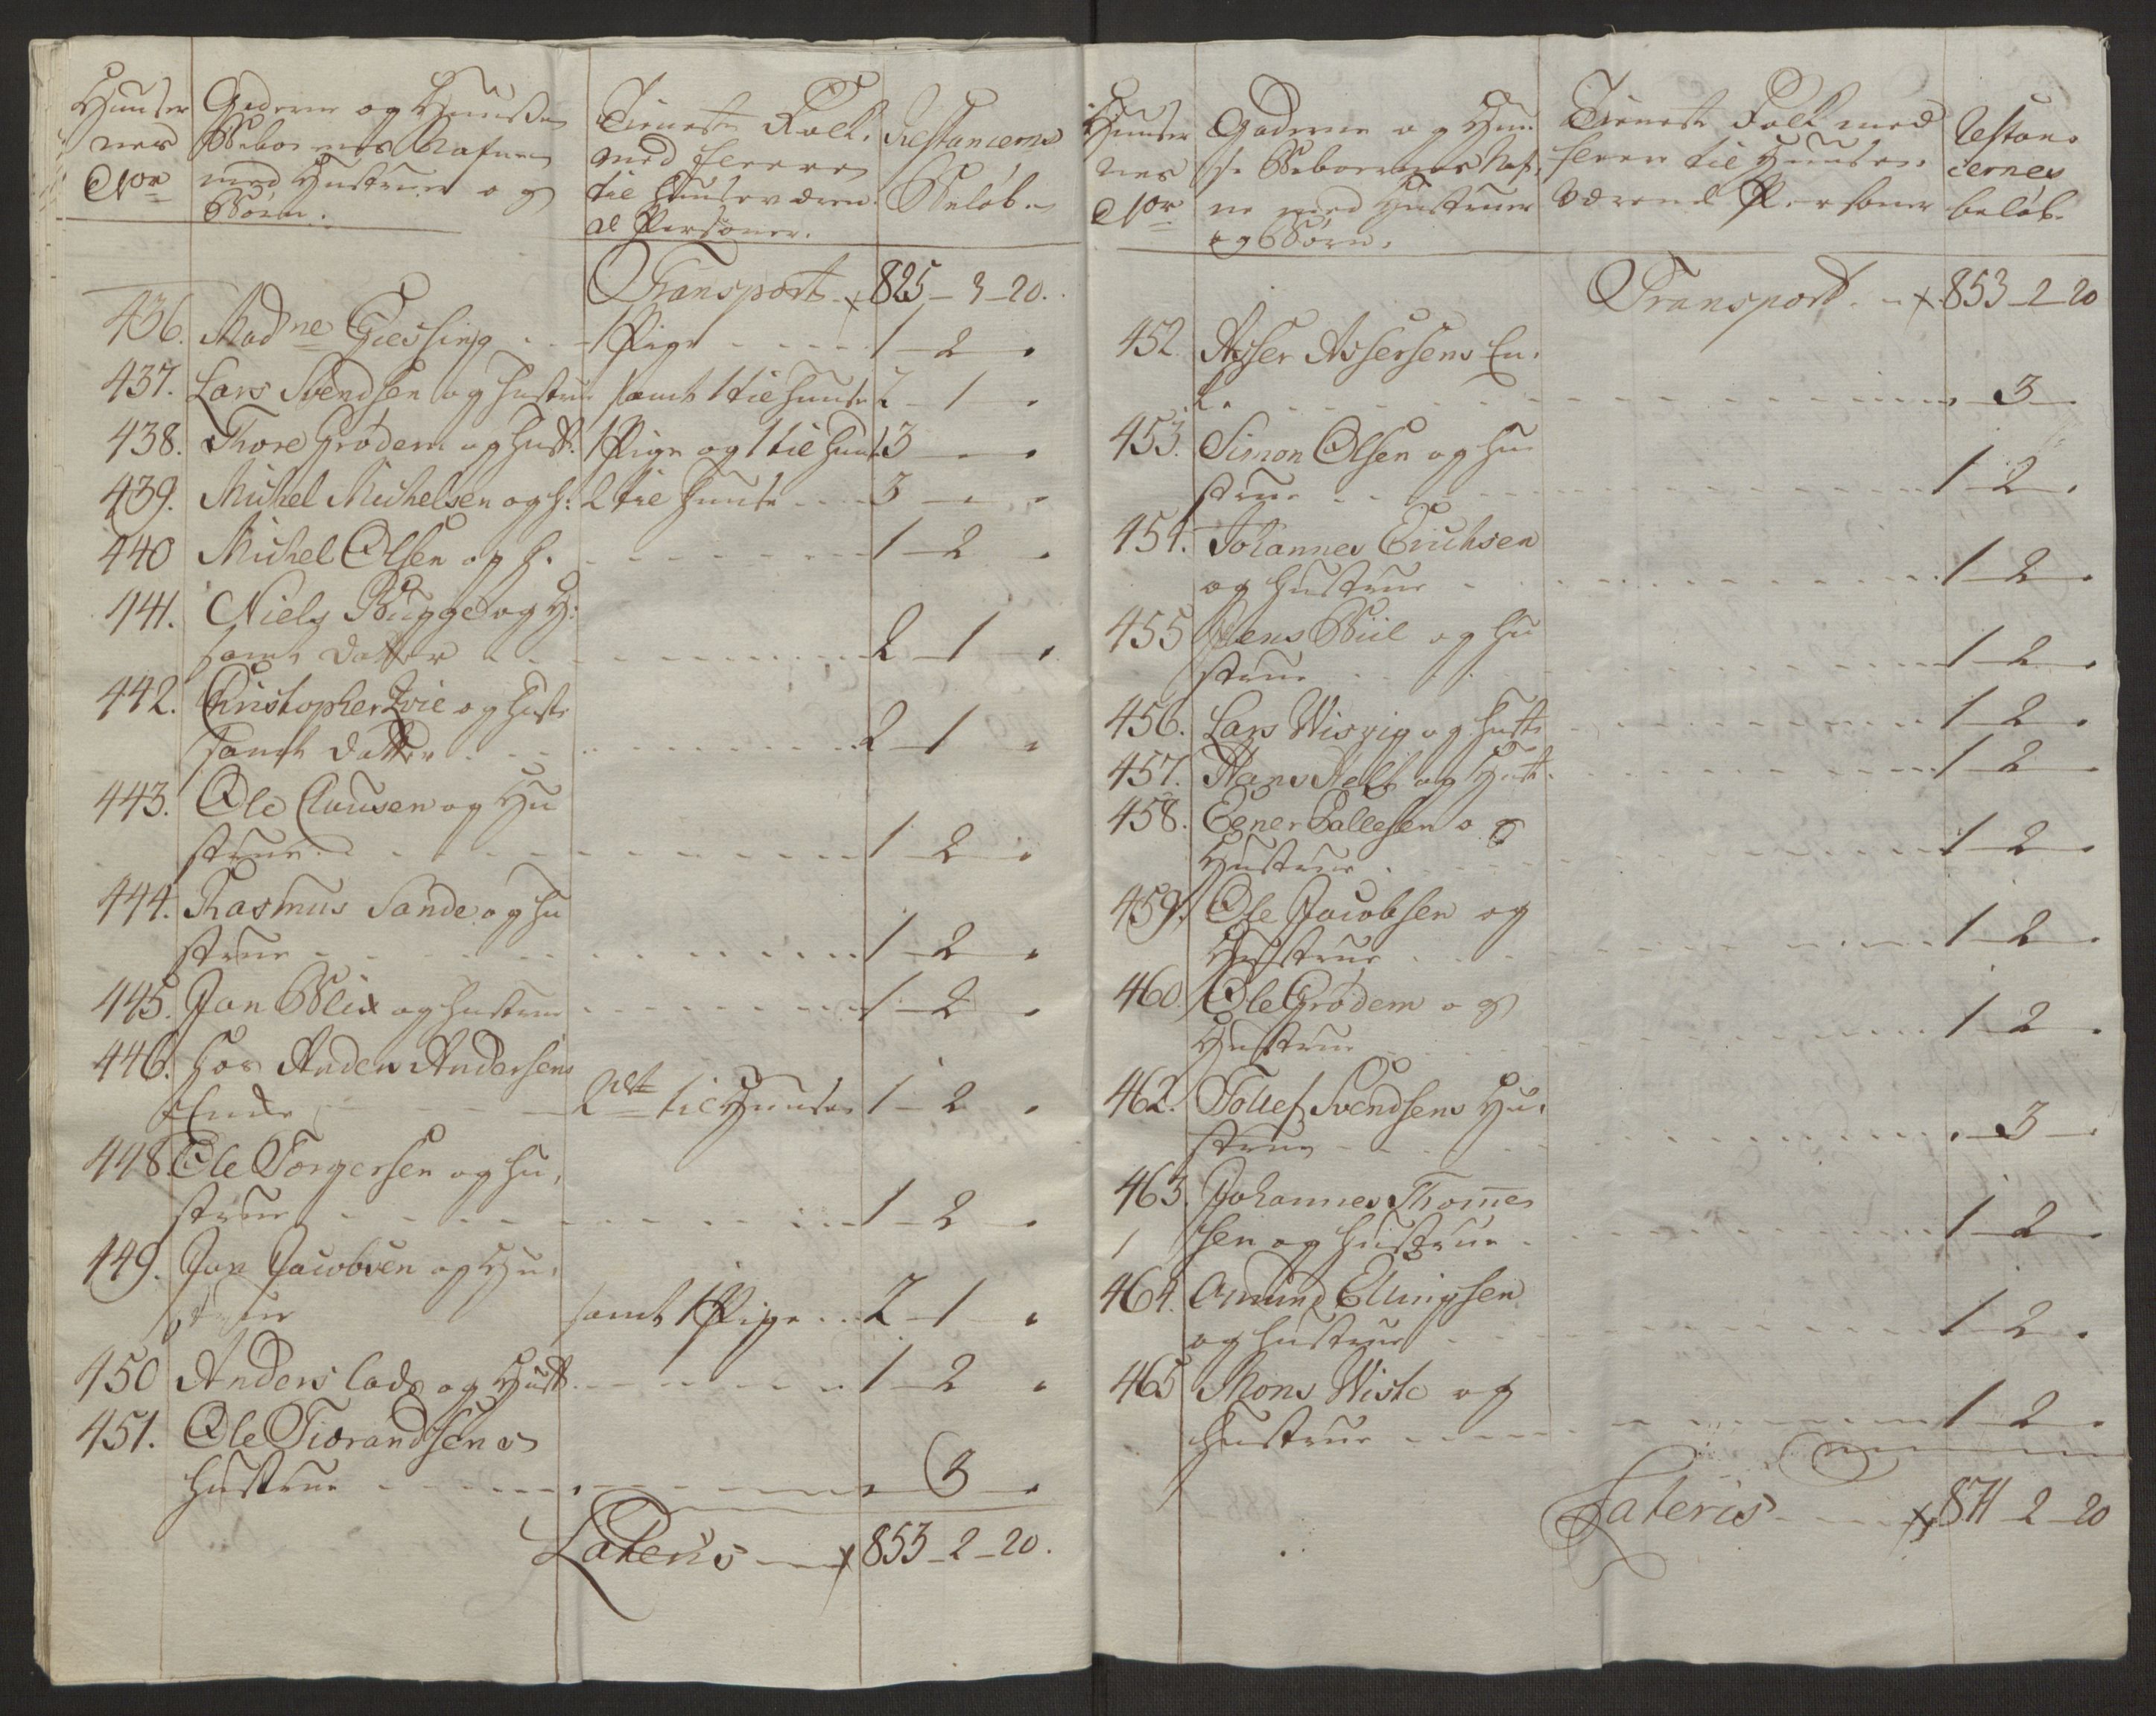 Huuser
nes
No
Gaderne og Huusenes
Beboernes Nafne
med Hustruer og
Børn.
Tieneste Folk
med fleere
til Huuse væren
de Personer.
Restancerne
Beløb
Transport 825 - 3 - 20.
436. Mad ne Giessing - - 1 Pige - - - 1 - 2 -
437. Lars Svendsen og hustrue samt 1 til huuse 2 - 1 -
438. Thore Grødem og hust. 1 Pige og 1 til huuse 3 - -
439. Michel Michelsen og h. 2 til huuse - - 3 - -
440 Michel Olsen og h. - - - 1 - 2 -
441. Niels Bugge og H:
samt datter - - - 2 - 1 -
442. Christopher Zvie og hustr
samt datter - - - 2 - 1 -
443. Ole Clausen og Hu
strue - - - 1 - 2 -
444. Rasmus Sande og hu
strue - - - 1 - 2 -
445. Jan Blix og hustrue - - - 1 - 2 -
446. hos Anders Andersens
Enke - - - 2 til Huuse 1 - 2 -
448. Ole Torgersen og hu,
strue - - - 1 - 2 -
449. Jan Jacobsen og Hu,
strue samt 1 Pige - - 2 - 1 -
450 Anders lads og Hust. - - - 1 - 2 -
451. Ole Tiorandsens
hustrue - - - 3 -
Lateris - - 853 - 2 - 20.
Huuser
nes
No
Gaderne og Huu
se Beboernes Naf,
ne med Hustruer
og Børn.
Tieneste Folk med
fleere til Huuse
værende Personer
Restan
cernes
beløb
Transport - - 853 - 2 - 20
452. Asser Assersens En,
ke - - - 3 -
453. Simon Olsen og hu
strue - - - 1 - 2 -
454. Johannes Erichsen
og hustrue - - - 1 - 2 -
455 Jens Biil og hu
strue - - - 1 - 2 -
456. Lars Wisvig og hustr - - - 1 - 2 -
457. Hans Kolb og Hust. - - - 1 - 2 -
458. Eener Pallesen og
Hustrue - - - 1 - 2 -
459. Ole Jacobsen og
Hustrue - - - 1 - 2 -
460. Ole Grødem og
Hustrue - - - 1 - 2 -
462. Tollef Svendsens Hu,
strue - - - 3 -
463. Johannes Thomes
sen og hustrue - - - 1 - 2 -
464. Amund Ellingsen
og hustrue - - - 1 - 2 -
465 Mons Wiste og
hustrue - - - 1 - 2 -
Lateris - - 871 - 2 - 20